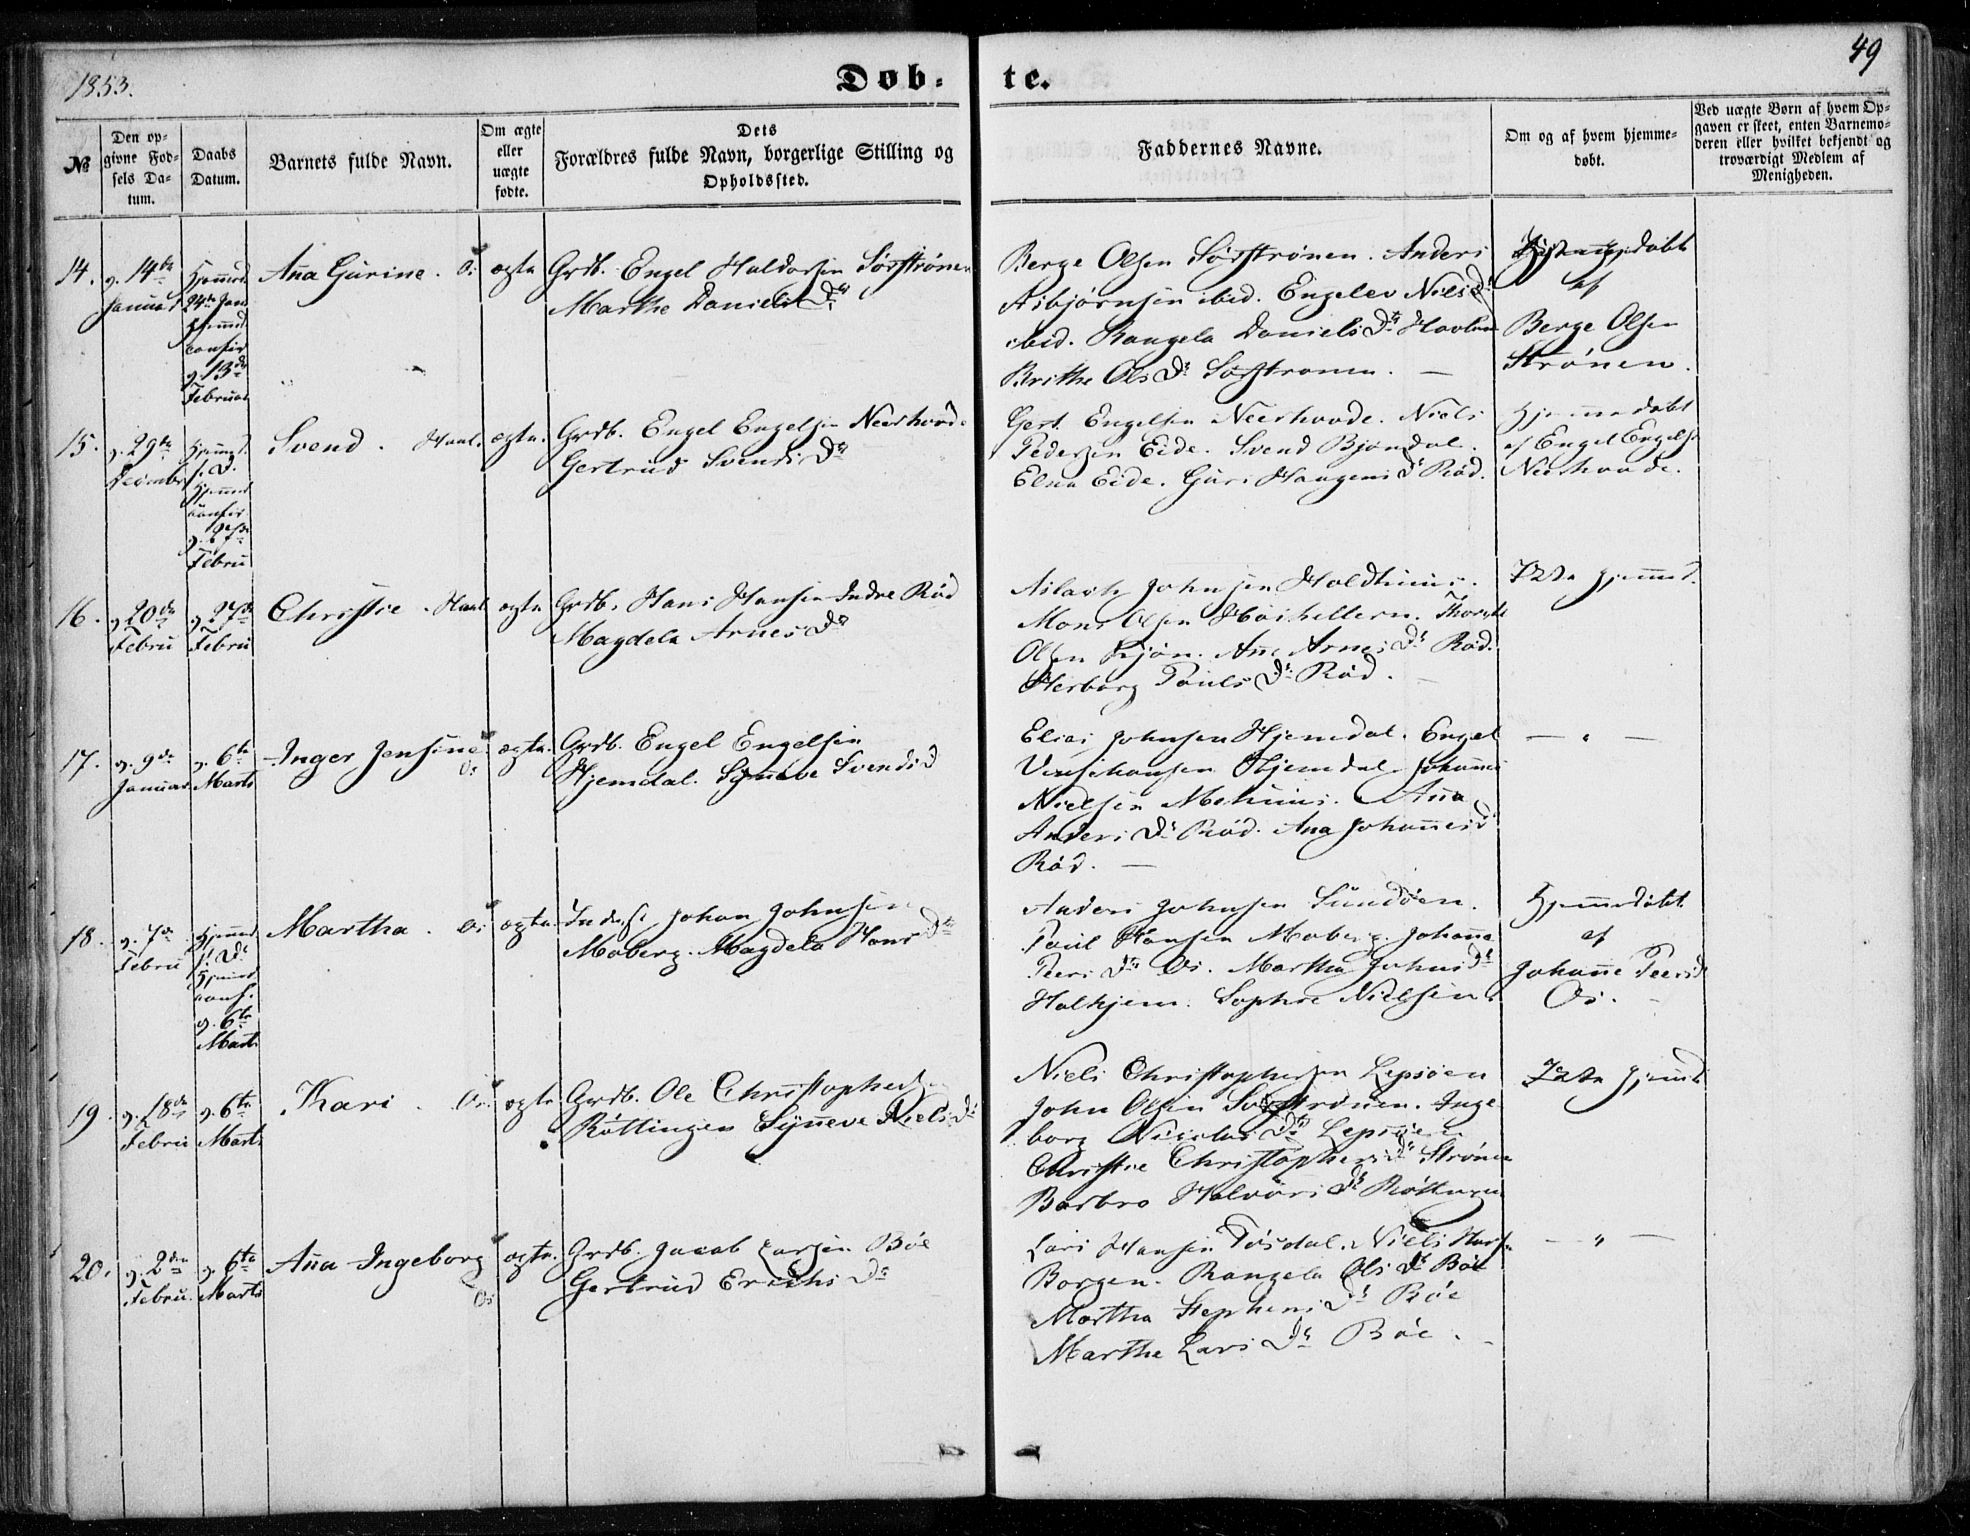 1853.
Døb-
te.
49
№
Den op-
givne Fød-
sels Da-
tum.
Daabs
Datum.
Barnets fulde Navn.
Om ægte
eller
uægte
fødte.
Dets
Forældres fulde Navn, borgerlige Stilling og
Opholdssted.
Faddernes Navne.
Om og af hvem hjemme-
døbt.
Ved uægte Børn af hvem Op-
gaven er skeet, enten Barnemo-
deren eller hvilket bekjendt og
troværdigt Medlem af
Menigheden.
14.
d. 14de
Januar
Hjemmed.
24de Jan
hjemmed
confir
d. 13de
Februar
Anna Gurine. Os
ægte
Grdb. Engel Haldorsen Sørstrønen
Marthe Daniels Dr
Berge Olsen Sørstrønen. Anders
Asbjørnsen ibid. Engelev Niels Dr
ibid. Rangela Daniels Dr
Brithe Ols Dr Sørstrønen. —
Hjemmedøbt
af
Berge Olsen
Strønen.
15.
d. 29de
Decembr
Hjemmed.
s. D.
Hjemmed
confir
d. 27de
Febru
Svend. Haal.
ægte.
Grdb. Engel Engelsen Neerhovde
Gertrud Svends Dr
Gert. Engelsen Neerhovde. Niels
Pedersen Eide. Svend Bjørndal.
Elna Eide. Guri Haagens Dr Rød.
Hjemmedøbt
af Engel Engelsn
Neerhovde.
16.
d. 20de
Febru
d. 27de
Febru
Christie. Haal
ægte
Grdb. Hans Hansen Indre Rød
Magdela Arnes Dr
Aslach Johnsen Holdhuus.
Mons Olsen Høihellern.
Olsen Ane Arnes Dr Rød.
Herborg Pouls Dr Rød. —
Ikke hjemmed.
17.
d. 9de
Januar
d. 6te
Marts
Inger Jensine
Os
ægte.
Grdb. Engel Engelsen
Hjemdal. Synneve Svends D
Elias Johnsen Hjemdal. Engel
Hjemdal Johannes
Nielsen Mohuus. Anna
Anders Dr Rød. Ana Johannes D
Rød. —
— " —
18.
d. 7de
Febru
Hjemmed.
s. D.
Hjemmed
conf.
d. 6te
Marts
Martha. Os
ægte.
Inderst Johan Johnsen
Moberg. Magdela Hans Dr
Anders Johnsen Sundøen.
Poul Hansen Moberg. Johanne
Peers Dr Os. Martha Johns Dr
Halhjem. Sophie Nielsen.
Hjemmedøbt
af
Johanne Peers D
Os. —
19.
d. 18de
Febru
d. 6te
Marts
Kari. Os
ægte
Grdb. Ole Christophersen
Røttingen Synneve Niels Dr
Niels Christophersen Lepsøen
John Olsen Sørstrønen. Inge-
borg Nicolai Dr Lepsøen
Christie Christophers Dr Strønen
Barbro Halvors Dr Røttingen
Ikke hjemmed
20.
d. 2den
Febru.
d. 6te
Marts
Anna Ingeborg
Os
ægte.
Grdb. Jacob Larsen Bøe
Gertrud Erichs Dr
Lars Hansen Tøsdal. Niels Hansn
Borgen. Rangela Ols Dr Bøe
Martha Stephens Dr Bøe
Marthe Lars Dr Bøe. —
— " —